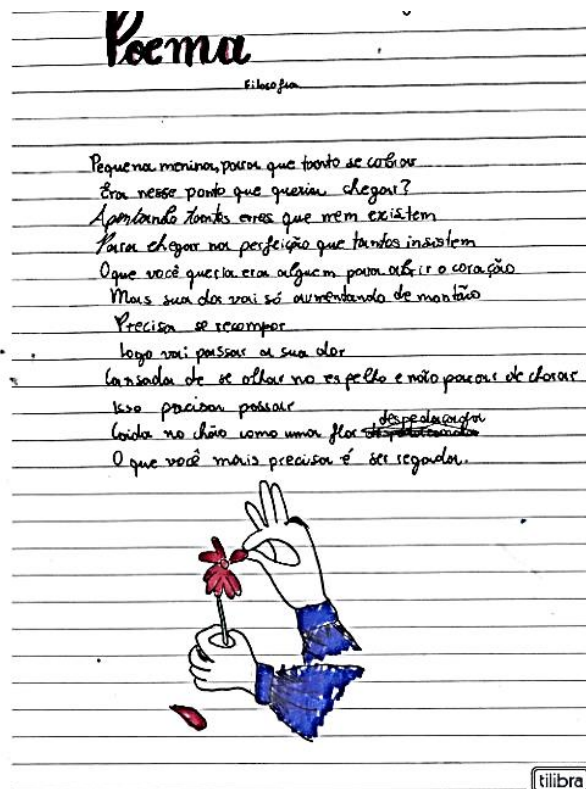 Poema
Filosofia
Pequena menina, para que tanto se cobrar
Era nesse ponto que queria chegar?
Apontando tantos erros que nem existem
Para chegar na perfeição que tantos insistem
Oque você queria era alguem para abrir o coração
Mais sua dor vai só aumentando de montão
Precisa se recompor
logo vai passar a sua dor
Cansada de se olhar no espelho e não parar de chorar
Isso precisa passar
despedaçada
Caida no chão como uma flor
O que você mais precisa é ser regada.
tilibra